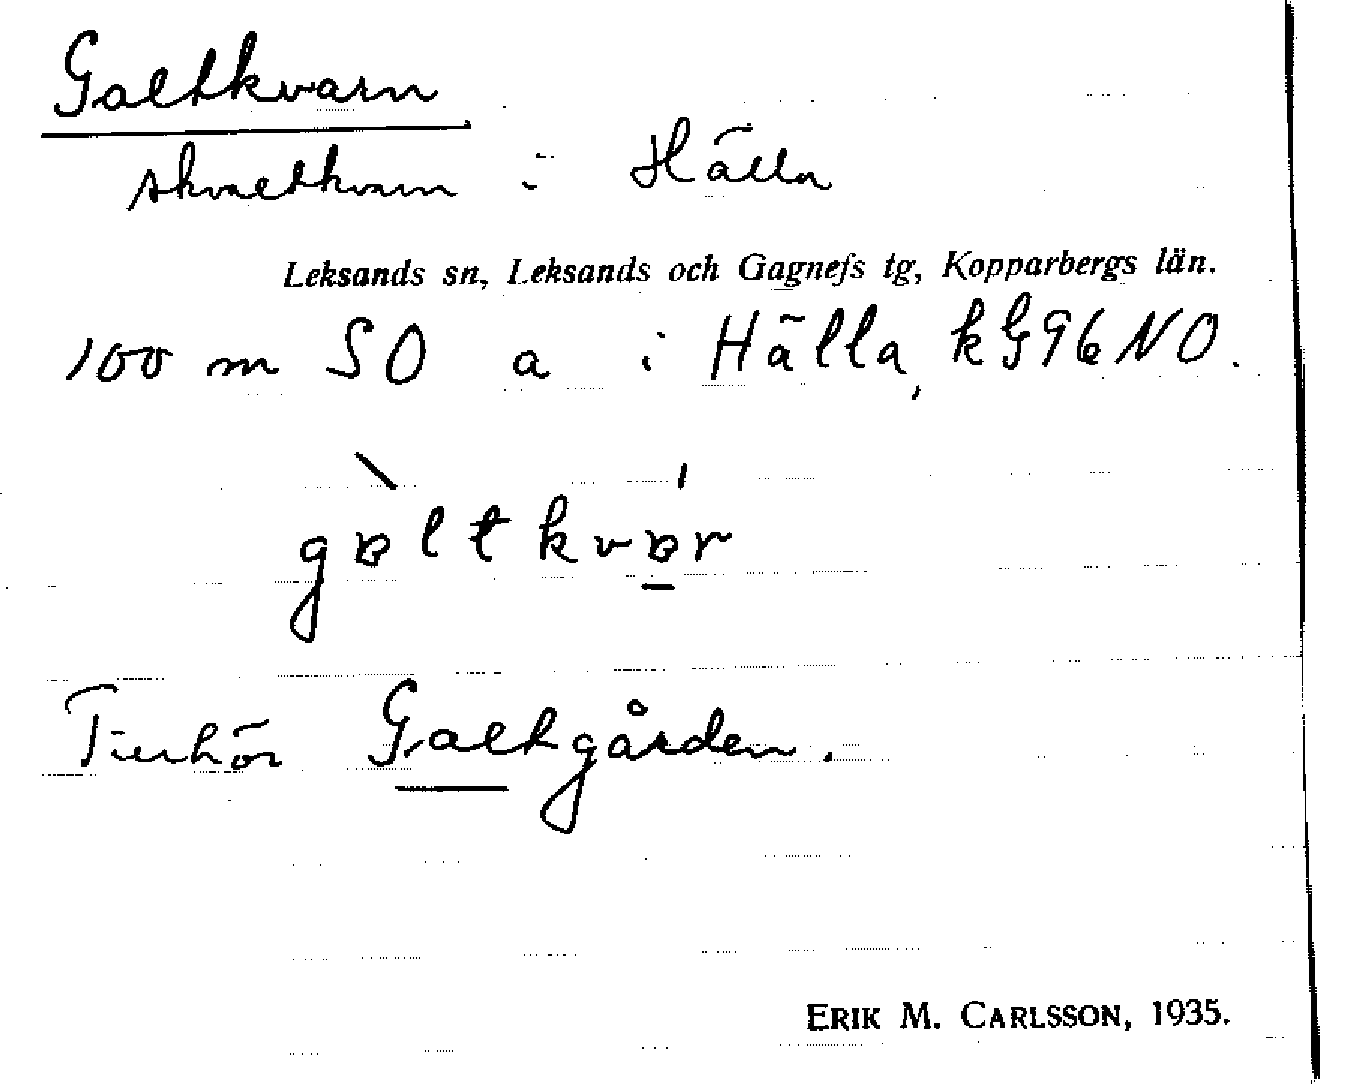 Galtkvarn
skvaltkvarn i Hälla
Leksands sn, Leksands och Gagnefs tg, Kopparbergs län.
100 m SO a i Hälla, kG96NO.
gɐltkvɐr
Tillhör Galtgården.
ERIK M. CARLSSON, 1935.